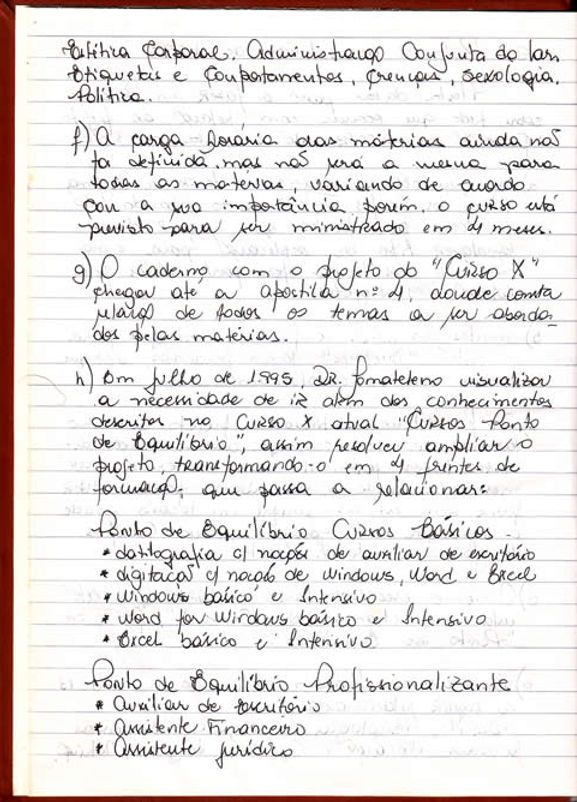 Estética Corporal. Administração Conjunta do lar.
Etiquetas e Comportamentos, Crenças, Sexologia.
Política.
f) A carga horária das matérias ainda não
foi definida mas não será a mesma para
todas as matérias, variando de acordo
com a sua importância porém, o curso está
previsto para ser ministrado em 4 meses.
g) O caderno com o projeto do "Curso X"
chegou até a apostila nº 4, donde consta
relação de todos os temas a ser aborda-
dos pelas matérias.
h) Em julho de 1.995, DR. visualizou
a necessidade de ir além dos conhecimentos
descritos no Curso X atual "Cursos Ponto
de Equilíbrio", assim resolveu ampliar o
projeto, transformando-o em 4 frentes de
formação, que passa a relacionar:
Ponto de Equilíbrio Cursos Básicos -
* datilografia c/ noções de auxiliar de escritório
* digitação c/ noção de Windows, Word e Excel
* Windows básico e Intensivo
* Word for Windows básico e Intensivo
* Excel básico e Intensivo
Ponto de Equilíbrio Profissionalizante
* Auxiliar de escritório
* Assistente Financeiro
* Assistente jurídico